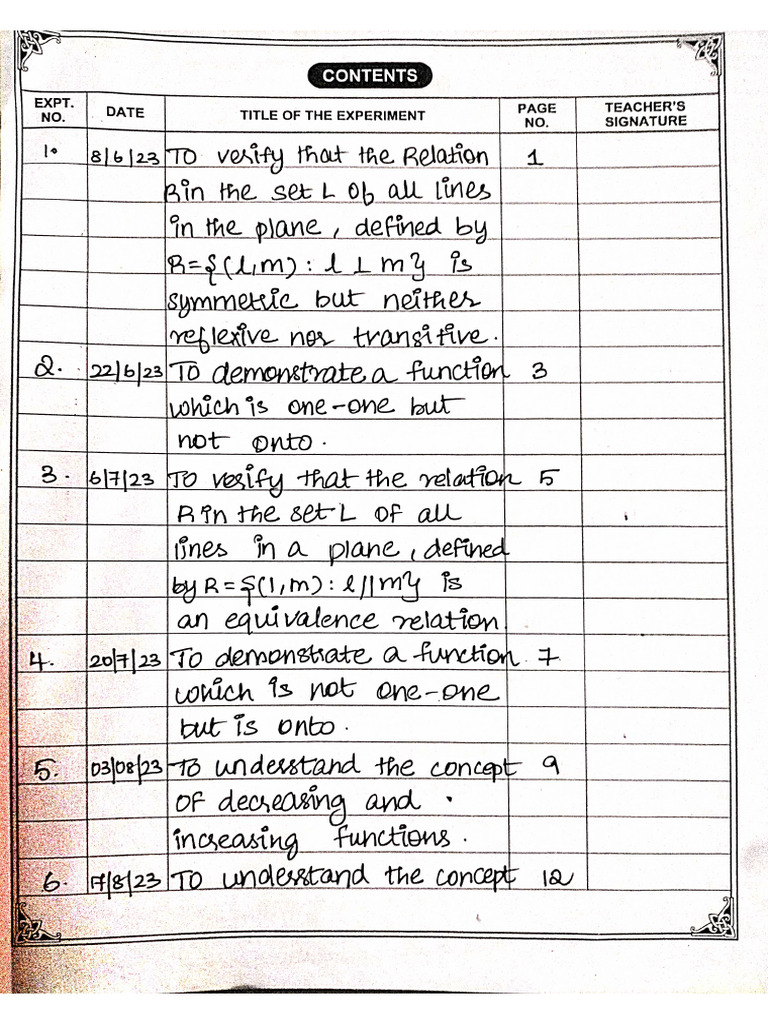 CONTENTS
EXPT. NO. DATE TITLE OF THE EXPERIMENT PAGE NO. TEACHER'S SIGNATURE
1. 8/6/23 To verify that the Relation 1
R in the set L of all lines
in the plane, defined by
R={(l,m): l ⊥ m} is
symmetric but neither
reflexive nor transitive.
2. 22/6/23 To demonstrate a function 3
which is one-one but
not onto.
3. 6/7/23 To verify that the relation 5
R in the set L of all
lines in a plane, defined
by R={(l,m): l||m} is
an equivalence relation
4. 20/7/23 To demonstrate a function 7
which is not one-one
but is onto.
5. 03/08/23 To understand the concept 9
of decreasing and
increasing functions.
6. 17/8/23 To understand the concept 12